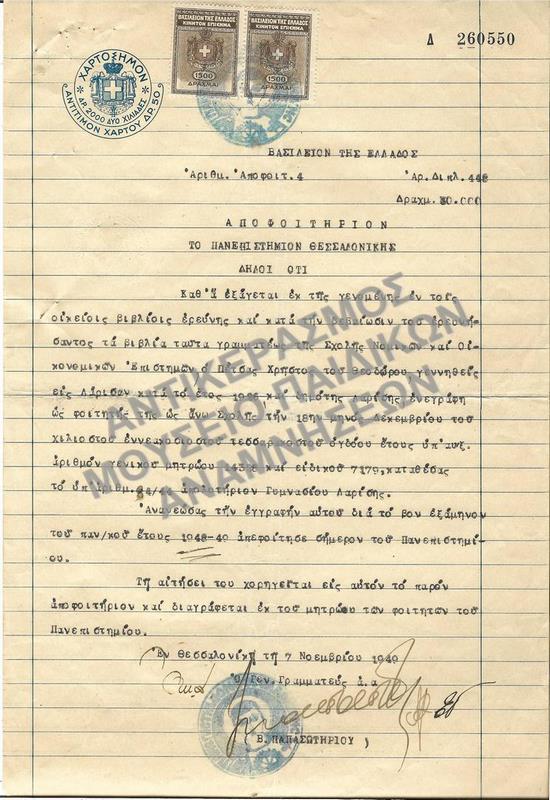 Δ 260550
ΒΑΣΙΛΕΙΟΝ ΤΗΣ ΕΛΛΑΔΟΣ
ΚΙΝΗΤΟΝ ΕΠΙΣΗΜΑ
1500
ΔΡΑΧΜΑΙ
ΒΑΣΙΛΕΙΟΝ ΤΗΣ ΕΛΛΑΔΟΣ
ΚΙΝΗΤΟΝ ΕΠΙΣΗΜΑ
1500
ΔΡΑΧΜΑΙ
ΧΑΡΤΟΣΗΜΟΝ
ΔΡ. 2000 ΔΥΟ ΧΙΛΙΑΔΕΣ
ΑΝΤΙΤΙΜΟΝ ΧΑΡΤΟΥ ΔΡ. 50
ΒΑΣΙΛΕΙΟΝ ΤΗΣ ΕΛΛΑΔΟΣ
Ἀριθμ. Ἀποφοιτ. 4 Ἀρ. Διπλ. 448
Δραχμ. 30.000
ΑΠΟΦΟΙΤΗΡΙΟΝ
ΤΟ ΠΑΝΕΠΙΣΤΗΜΙΟΝ ΘΕΣΣΑΛΟΝΙΚΗΣ
ΔΗΛΟΙ ΟΤΙ
Καθ'ἅ ἐξάγεται ἐκ τῆς γενομένης ἐν τοῖς
οἰκείοις βιβλίοις ἐρεύνης καί κατά τήν βεβαίωσιν τοῦ ἐρευνή-
σαντος τά βιβλία ταῦτα γραμματέως τῆς Σχολῆς Νομικῶν καί Οἰ-
κονομικῶν Ἐπιστημῶν ὁ Πέτσας Χρῆστος τοῦ Θεοδώρου γεννηθείς
εἰς Λάρισαν κατά τό ἔτος καί δημότης Λαρίσης ἐνεγράφη
ὡς φοιτητής τῆς ὡς ἄνω Σχολῆς τήν 18ην μηνός Δεκεμβρίου τοῦ
χιλιοστοῦ ἐννεακοσιοστοῦ τεσσαρακοστοῦ ὀγδόου ἔτους ὑπ'αὐξ.
ἀριθμόν γενικοῦ μητρώου καί εἰδικοῦ 7179, καταθέσας
τό ὑπ'ἀριθμ. ἀπολυτήριον Γυμνασίου Λαρίσης.
Ἀνανεώσας τήν ἐγγραφήν αὐτοῦ διά τό βον ἐξάμηνον
τοῦ παν/κοῦ ἔτους 1948-49 ἀπεφοίτησε σήμερον τοῦ Πανεπιστημί-
ου.
Τῇ αἰτήσει του χορηγεῖται εἰς αὐτόν τό παρόν
ἀποφοιτήριον καί διαγράφεται ἐκ τοῦ μητρώου τῶν φοιτητῶν τοῦ
Πανεπιστημίου.
Ἐν Θεσσαλονίκῃ τῇ 7 Νοεμβρίου 1949
Ὁ Γεν. Γραμματεύς ἀ.α
Β. ΠΑΠΑΣΩΤΗΡΙΟΥ )
ΑΝΤΙΚΕΡΑΣΜΟΣ
ΜΟΥΣΕΙΟ ΠΑΙΔΙΚΩΝ
ΑΝΑΜΝΗΣΕΩΝ